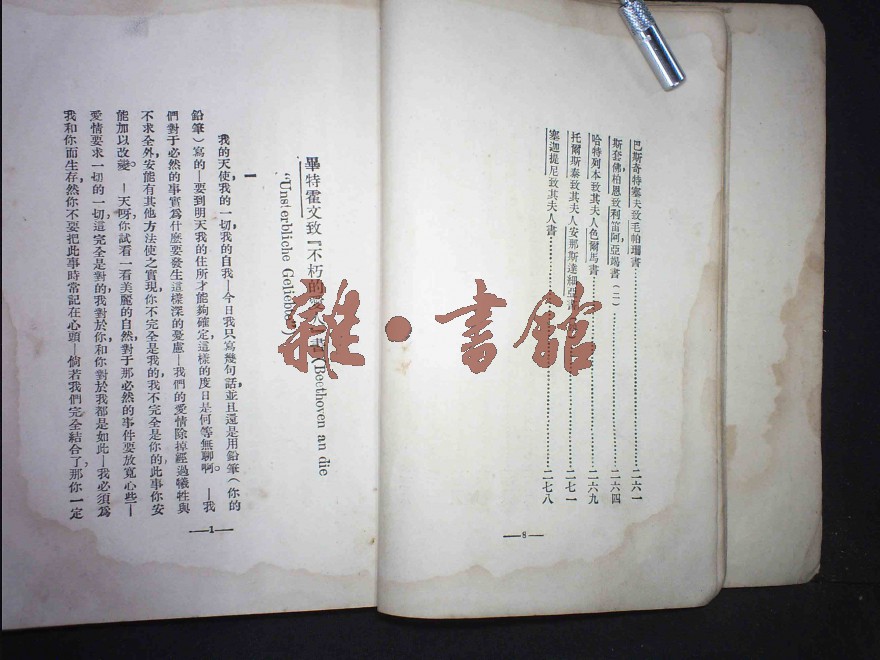 巴斯奇特塞夫致毛帕瓓書……二六一
斯套佛柏恩致利笛阿,亞竭書(二)……二六四
哈特列本致其夫人色爾馬書……二六九
托爾斯泰致其夫人安那斯達細亞……二七一
塞迦提尼致其夫人書……二七八
—8—
畢特霍文致『不朽的 書(Beethoven an die
“Unsterbliche Geliebte”)
一
我的天使,我的一切,我的自我—今日我只寫幾句話,並且還是用鉛筆(你的
鉛筆)寫的—要到明天我的住所才能夠確定,這樣的度日是何等無聊啊。—我
們對于必然的事實爲什麼要發生這樣深的憂慮—我們的愛情除掉經過犧牲與
不求全外,安能有其他方法使之實現,你不完全是我的,我不完全是你的,此事你安
能加以改變。—天呀,你試看一看美麗的自然,對于那必然的事件要放寬心些—
愛情要求一切的一切,這完全是對的,我對於你,和你對於我都是如此—我必須爲
我和你而生存,然你不要把此事時常記在心頭—倘若我們完全結合了,那你一定
—1—
雜·書館